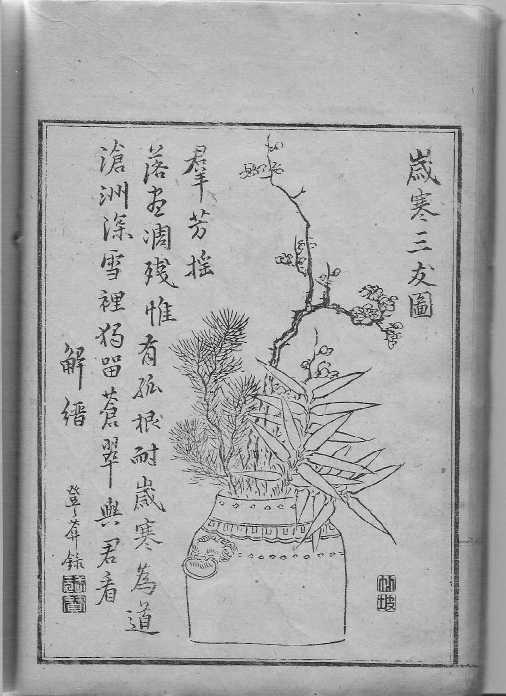 歲寒三友圖
羣芳搖
落盡凋残惟有孤根耐歲寒為道
滄洲深雪裡獨留蒼翠與君看
解縉
登
錄
竹坡